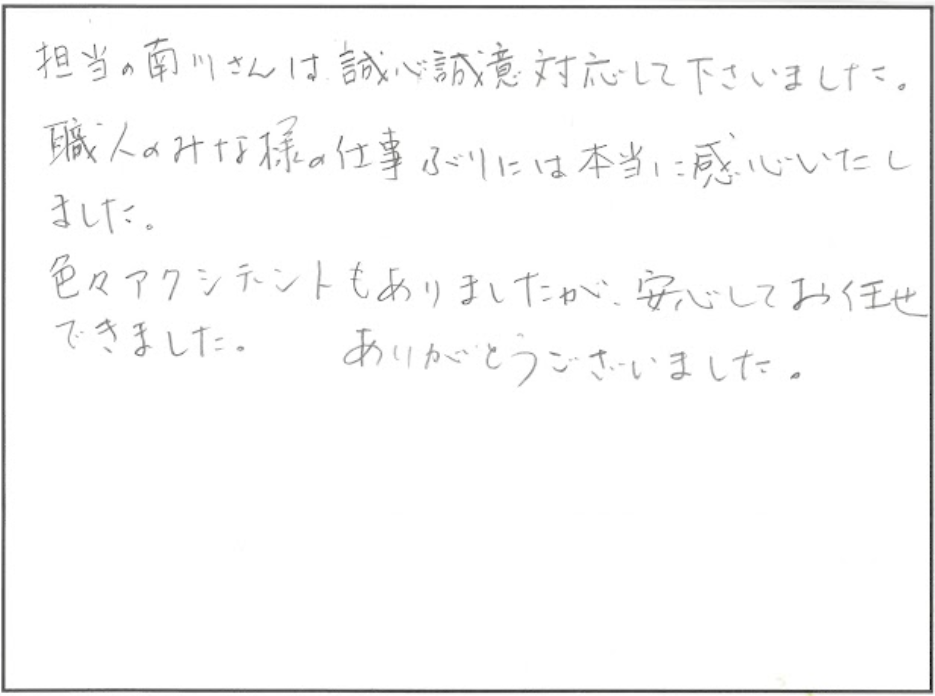 担当の南川さんは誠心誠意対応して下さいました。
職人のみな様の仕事ぶりには本当に感心いたし
ました。
色々アクシデントもありましたが、安心してお任せ
できました。 ありがとうございました。